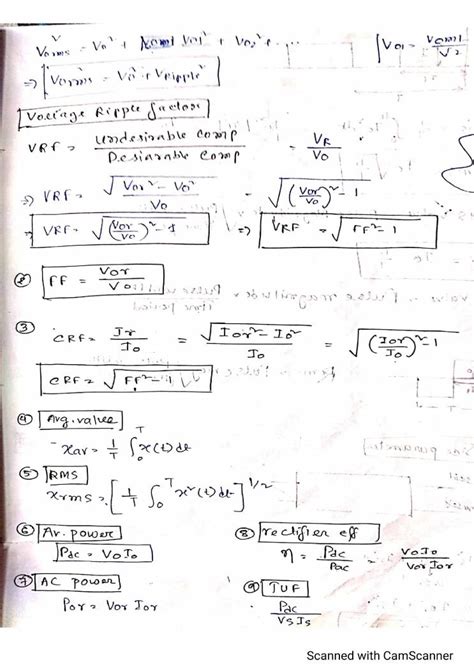 Vorms² = Vo² + Vo1² + Vo2² + ... | Vo1 = Vo1m/√2
=> Vorms² = Vo² + Vripple²
Voltage Ripple factor
VRF = Undesirable comp / Desirable comp = VR/Vo
=> VRF = √(Vor² - Vo²) / Vo = √((Vor/Vo)² - 1)
=> VRF = √((Vor/Vo)² - 1) => VRF = √(FF² - 1)
② FF = Vor/Vo
③ CRF = Ir/Io = √(Ior² - Io²) / Io = √((Ior/Io)² - 1)
CRF = √(FF² - 1)
④ Avg. value
xav = 1/T ∫₀ᵀ x(t) dt
⑤ RMS
xrms = [1/T ∫₀ᵀ x²(t) dt]^1/2
⑥ Av. power
Pdc = VoIo
⑦ AC power
Por = Vor Ior
⑧ rectifier eff
η = Pdc/Pac = VoIo / Vor Ior
⑨ TUF
Pdc / VsIs
Scanned with CamScanner